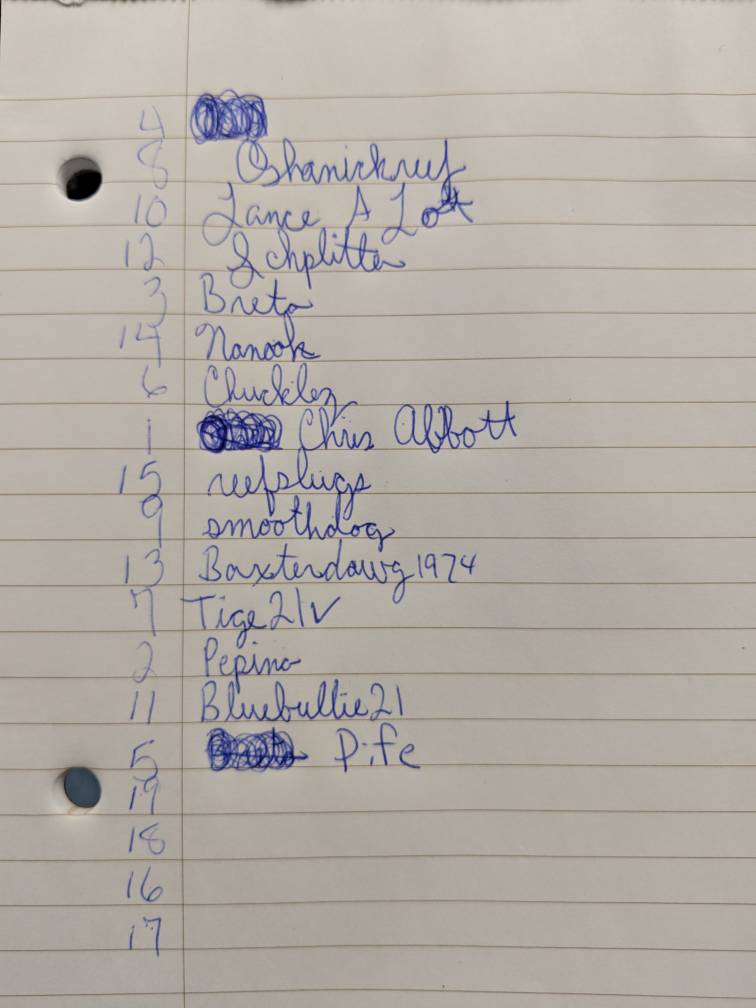 4
8 Oshanickreef
10 Lance A Lott
12 Schplitter
3 Breta
14 Nanook
6 Chucklez
1 Chris Abbott
15 reefslugs
9 smoothdog
13 Baxterdawg1974
7 Tige21v
2 Pepino
11 Bluebullie21
5 Dife
19
18
16
17